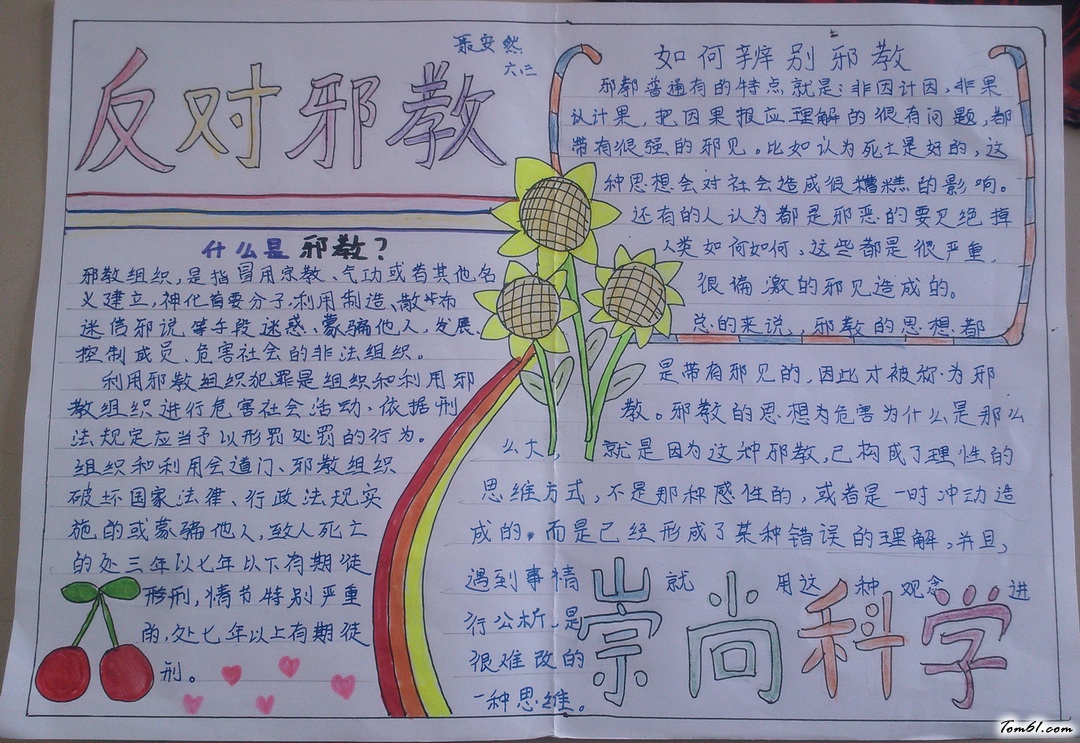 反对邪教
聂安然
六.二
什么是邪教？
邪教组织，是指冒用宗教、气功或者其他名
义建立，神化首要分子，利用制造、散布
迷信邪说，等手段迷惑、蒙骗他人，发展、
控制成员、危害社会的非法组织。
利用邪教组织犯罪是组织和利用邪
教组织进行危害社会活动、依据刑
法规定应当予以形罚处罚的行为。
组织和利用会道门、邪教组织
破坏国家法律、行政法规实
施的或蒙骗他人，致人死亡
的处三年以七年以下有期徒
形刑，情节特别严重
的，处七年以上有期徒
刑。
如何辨别邪教
邪教普遍有的特点就是：非因计因，非果
认计果，把因果报应理解的很有问题，都
带有很强的邪见。比如认为死亡是好的，这
种思想会对社会造成很糟糕的影响。
还有的人认为都是邪恶的要见绝掉
人类如何如何，这些都是很严重，
很偏激的邪见造成的。
总的来说，邪教的思想都
是带有邪见的，因此才被称为邪
教。邪教的思想为危害为什么是那么
么大，就是因为这种邪教，已构成了理性的
思维方式，不是那种感性的，或者是一时冲动造
成的。而是已经形成了某种错误的理解，并且，
遇到事情就用这种观念进
行公析，是
很难改的
一种思维。
崇尚科学
Tom61.com